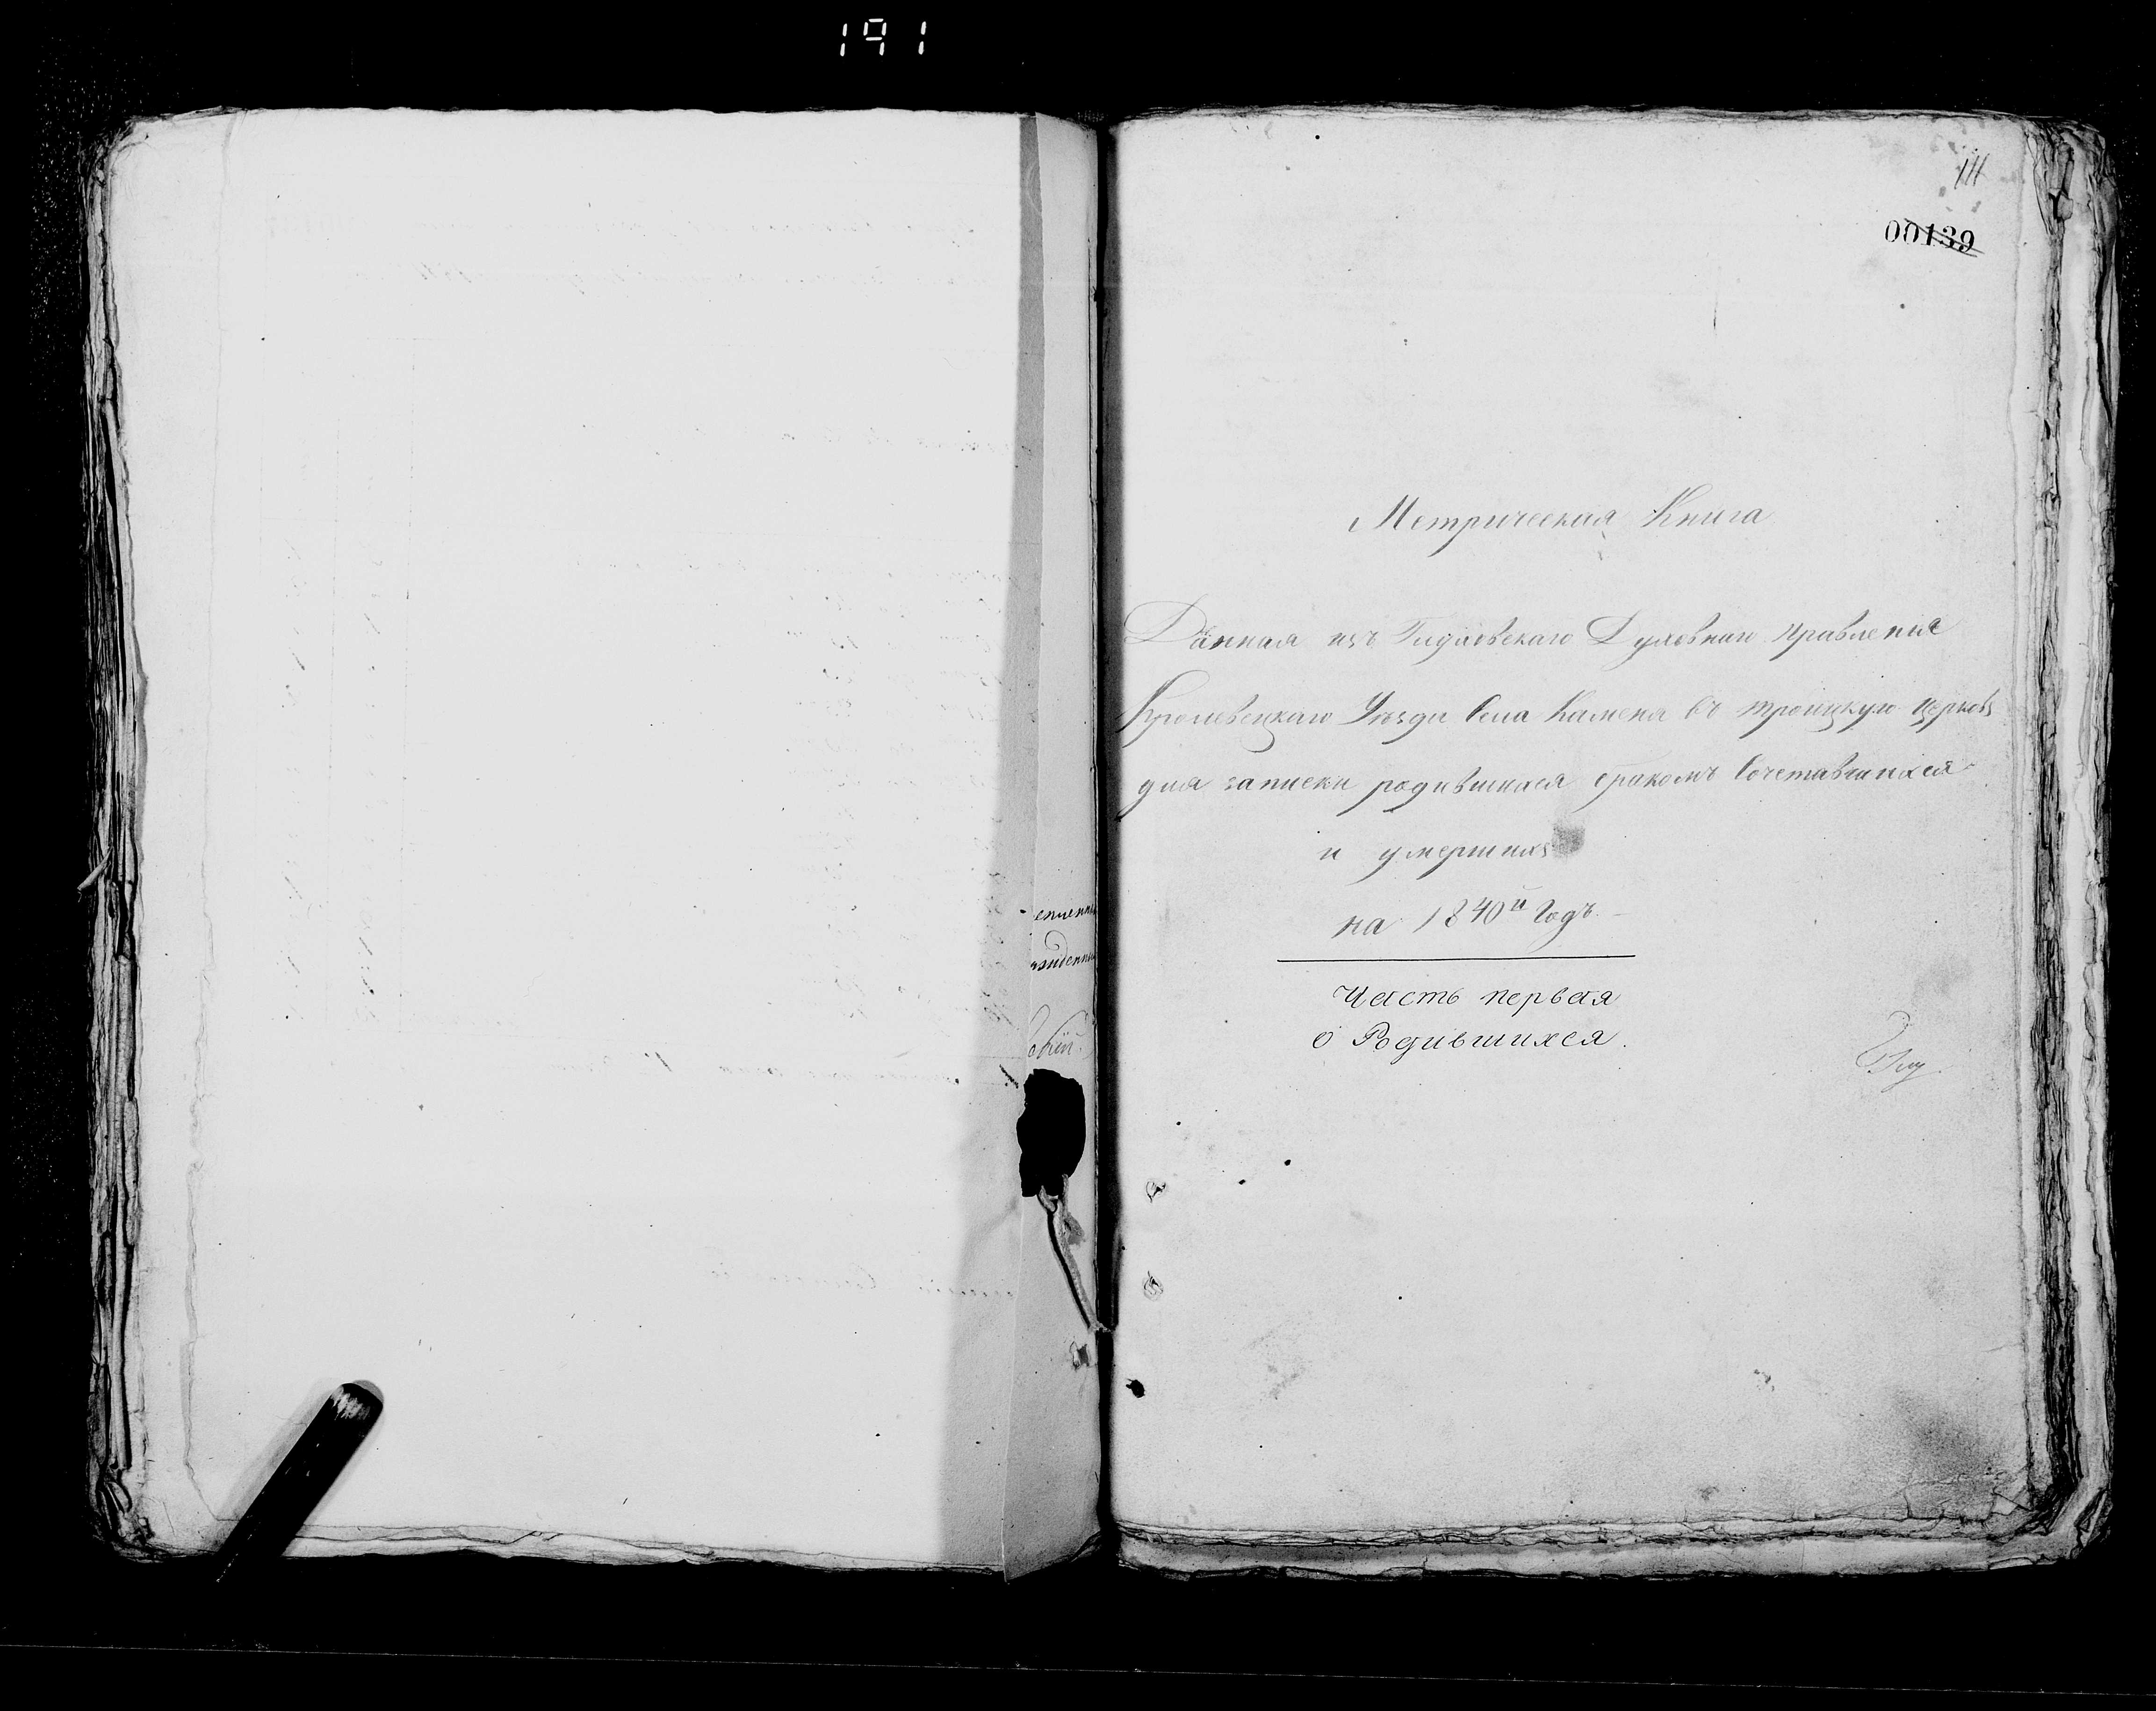 191
111
00139
Метрическая Книга
Данная изъ Глуховскаго Духовнаго правления
Кролевецкаго Уезда Села Каменя въ троицкую церковь
для записки родившихся бракомъ Сочетавшихся
и умершихъ
на 1840й Годъ
Часть первая
о Родившихся.